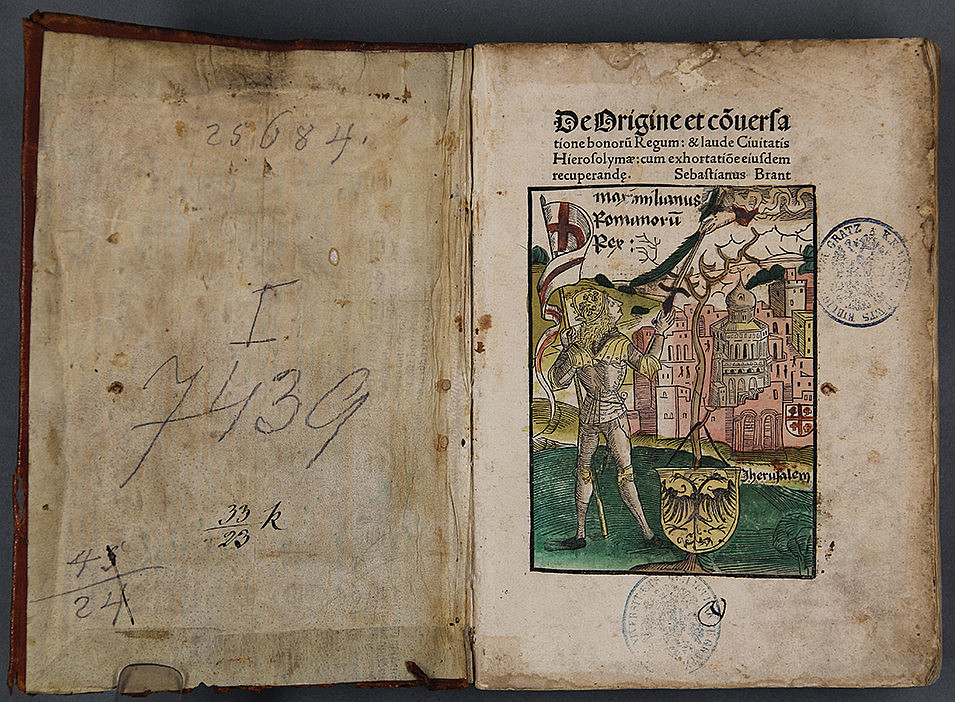 25684.
I
7439
33
23 k
45
24
De Origine et cõuersa
tione bonorũ Regum: & laude Ciuitatis
Hierosolymæ: cum exhortatiõe eiusdem
recuperandę. Sebastianus Brant
maximilianus
Romanorũ
Rex:
Jherusalem
GRATZ K.K.